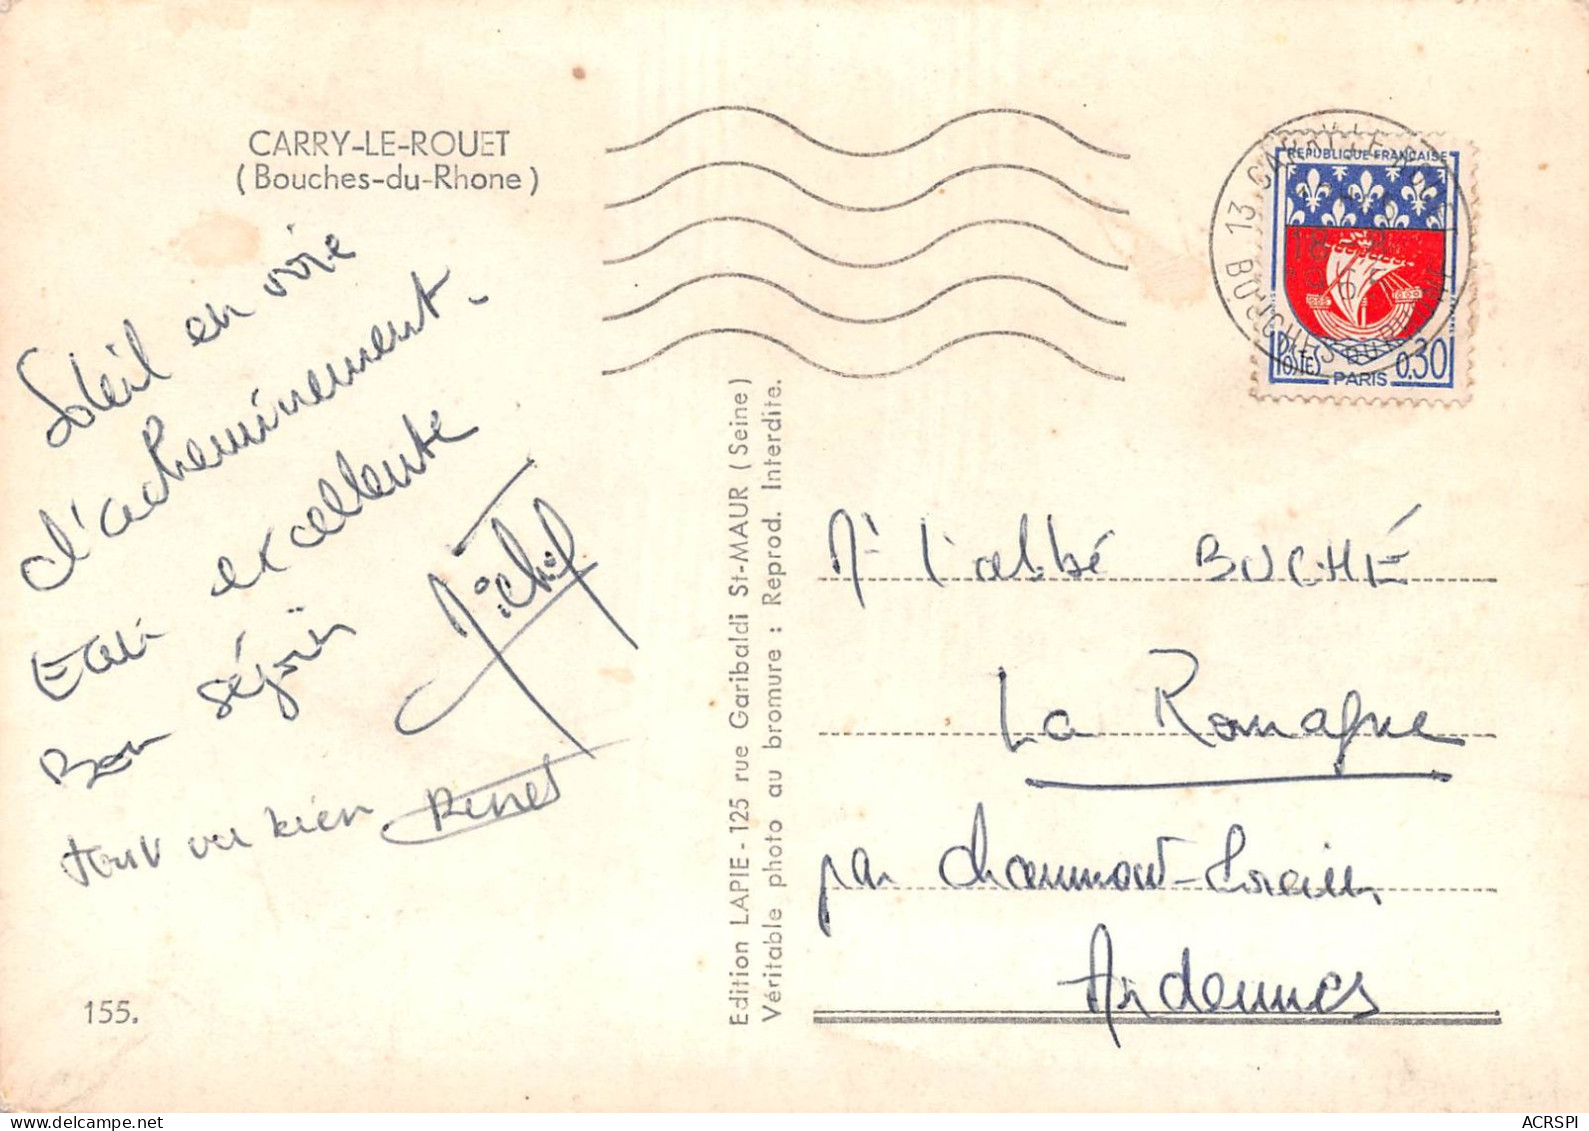 CARRY-LE-ROUET
(Bouches-du-Rhone)
Soleil en voie
d'acheminement.
Etat excellente
Bon séjour
Michel
tout va bien
155.
Edition LAPIE - 125 rue Garibaldi St-MAUR (Seine)
Véritable photo au bromure : Reprod. Interdite.
13 CARRY-LE-ROUET
18
1965
BOUCHES DU RHONE
REPUBLIQUE FRANÇAISE
POSTES
0,30
PARIS
Mr l'abbé BUCHÉ
La Romagne
par Chaumont-Porcien
Ardennes
ACRSPI